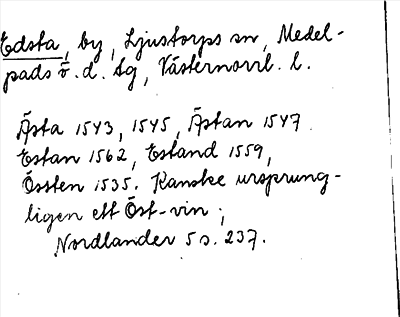 Edsta, by, Ljustorps sn, Medel-
pads ö. d. tg, Västernorrl. l.
Ästa 1543, 1545, Ästan 1547.
Estan 1562, Estand 1559,
Össten 1535. Kanske ursprung-
ligen ett Öst-vin;
Nordlander 5 s. 237.